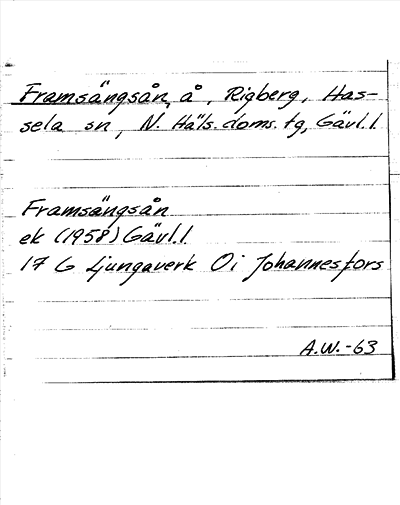 Framsängsån, å, Rigberg, Has-
sela sn, N. Häls. doms. tg, Gävl. l.
Framsängsån
ek (1958) Gävl. l.
17 G Ljungaverk Öi Johannesfors
A.W. -63